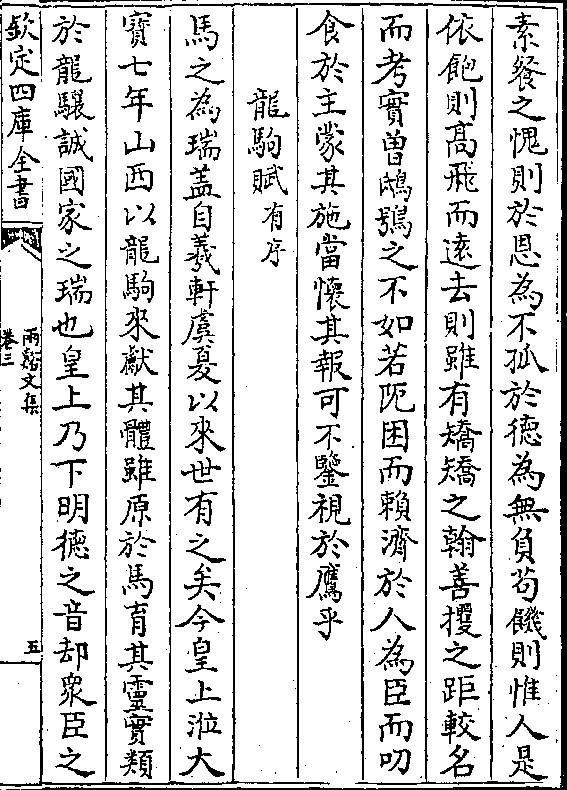 素餐之愧則於恩為不孤於徳為無負茍饑則惟人是
依飽則髙飛而逺去則雖有矯矯之翰善攫之距較名
而考實曽鴟鶚之不如若阨困而賴濟於人為臣而叨
食於主蒙其施當懐其報可不鑒視於鷹乎
龍駒賦有序
馬之為瑞葢自羲軒虞夏以來世有之矣今皇上涖大
寳七年山西以龍駒來獻其體雖原於馬育其靈實類
於龍驤誠國家之瑞也皇上乃下明徳之音却衆臣之
欽定四庫全書
兩谿文集
卷三
五